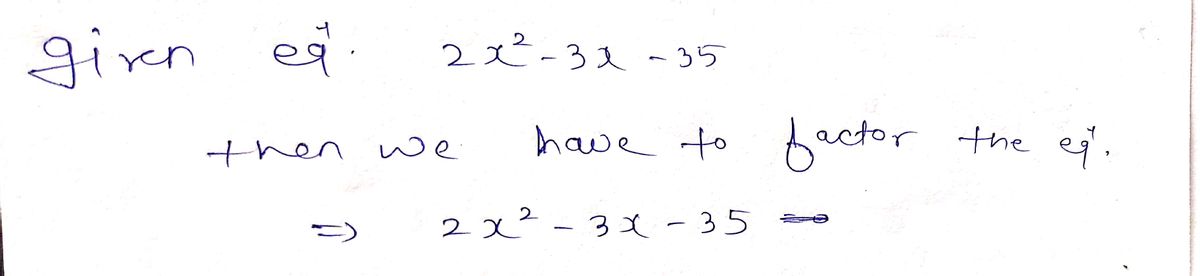 given eqⁿ. 2x² - 3x - 35
then we have to factor the eqⁿ.
⇒ 2x² - 3x - 35